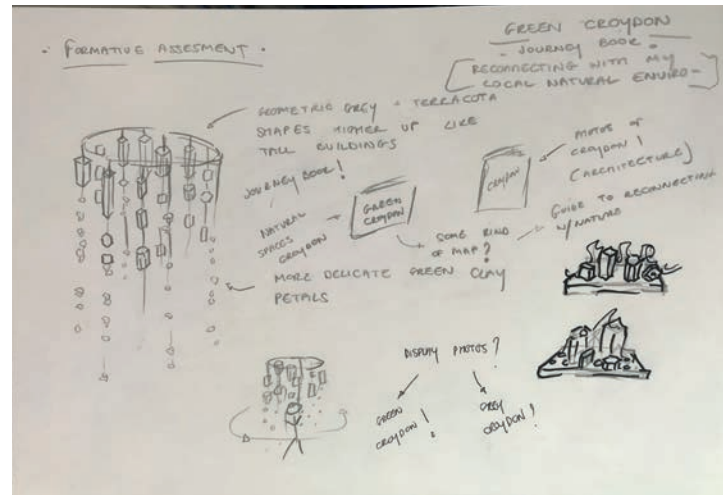 · FORMATIVE ASSESMENT ·
GREEN CROYDON
· JOURNEY BOOK ·
RECONNECTING WITH MY
LOCAL NATURAL ENVIRO-
GEOMETRIC GREY + TERRACOTA
SHAPES HIGHER UP LIKE
TALL BUILDINGS
JOURNEY BOOK!
NATURAL
SPACES
CROYDON
GREEN
CROYDON
CROYDON
PHOTOS OF
CROYDON!
(ARCHITECTURE)
SOME KIND
OF MAP?
GUIDE TO RECONNECTING
W/NATURE
MORE DELICATE GREEN CLAY
PETALS
DISPLAY PHOTOS?
GREEN
CROYDON!
GREY
CROYDON!